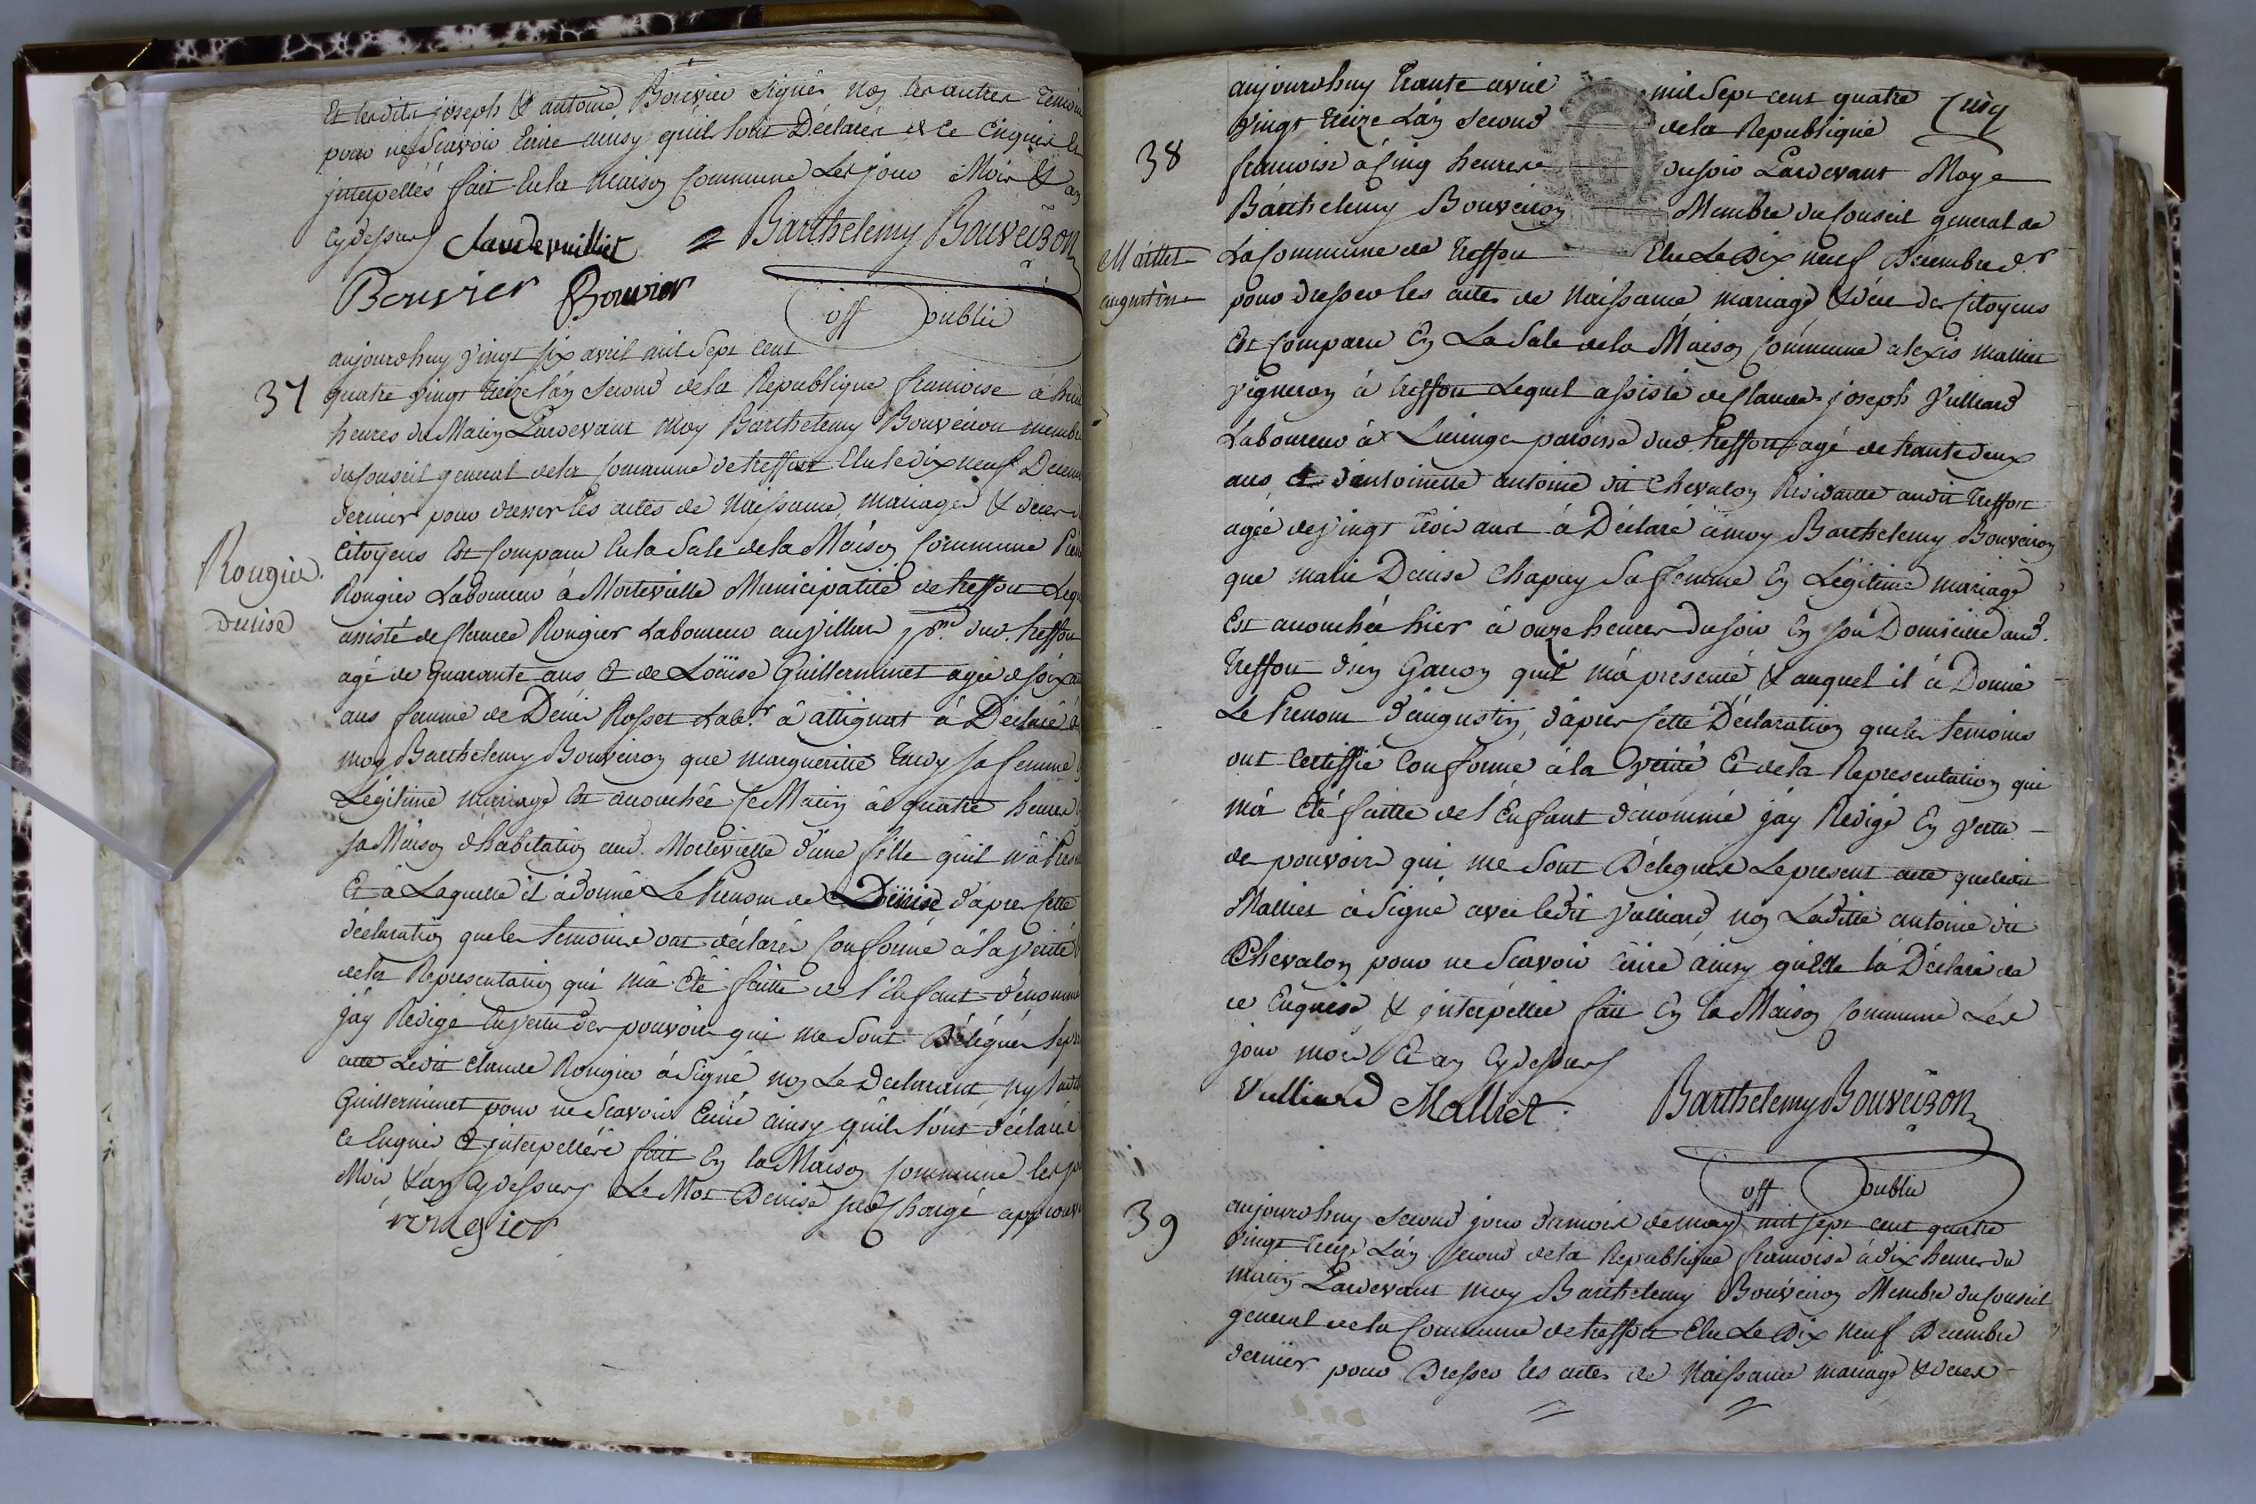 Et lesdits joseph & antoine Bouvier signés non les autres temoins
pour ne Scavoir Ecrire ainsy quil lont Déclarés de ce Enquis &
jnterpellés fait en la Maison Commune Les jour Mois & an
cydessus Claude vuilliet = Barthelemy Bouveiron
Bouvier Bouvier
off public
aujourdhuy vingt six avril mil Sept cent
37 quatre vingt treize lán second de la Republique francoise à huit
heures du Matin Pardevant moy Barthelemy Bouveiron membre
du Conseil general de la Commune de treffort Elu le dix neuf Décembre
dernier pour dresser les actes de Naissance, mariages & déces des
Citoyens Est Comparu en la Sale de la Maison Commune
Rougier
denise
Rougier Laboureur à Montevielle Municipalité de treffort Lequel
assisté de Claude Rougier Laboureur au villard p.sse dud. treffort
agé de Quarante ans & de Loüise Guillerminet agée de soixante
ans femme de Dénis Rosset Lab.r à attignat à Déclaré à
moy Barthelemy Bouveiron que margueritte sa femme
Légitime mariage Est accouchée ce Matin à quatre heures
sa Maison dhabitation aud. Montevielle dune fille quil má
Et à Laquelle il à donné Le Prenom de Dénise dápres cette
déclaration que les temoins ont déclarés Conforme à la verité
de la Representation qui má été faitte de l'enfant dénommé
jáy Rédigé en vertu des pouvoirs qui me sont Délégués
acte Ledit Claude Rougier à Signé non Le Declarant, ny
Guillerminet pour ne Scavoir Ecrire ainsy quils lónt déclaré
ce Enquis & jnterpelléés fait En la Maison Commune les jour
Mois & an Cydessus Le Mot Denise surchargé approuvé
rougier
aujourdhuy trante avril mil Sept cent quatre Cinq
vingt treize Lán second de la Republique
38 francoise à Cinq heures du soir Pardevant Moy
Barthelemy Bouveiron Membre du Conseil general de
Malliet
augustin
La Commune de Treffort Elu Le Dix neuf Décembre d.r
pour dresser les actes de Naissance mariage & déces des Citoyens
Est Comparu En La Sale de la Maison Commune alexis malliet
vigneron à treffort Lequel assisté de Claude joseph Vulliard
Laboureur à Lucinge paroisse dud. Treffort agé de trante deux
ans, & dántoinette antoine dit Chevalon Residante audit Treffort
agée de vingt trois ans à Déclaré à moy Barthelemy Bouveiron
que marie Denise Chapuy Sa femme En Légitime mariage
Est accouchée hier à onze heures du soir En son Domicille aud.
Treffort dún Garcon quil má presenté & auquel il à Donné
Le Prenom dáugustin, dápres Cette Déclaration que les temoins
ont Certiffié Conforme à la verité Et de la Representation qui
má été faitte de l'Enfant dénommé jáy Rédigé En vertu
des pouvoirs qui me Sont Délegués Le present acte que ledit
Malliet à Signé avec ledit Vulliard, non Laditte antoine dit
Chevalon pour ne Scavoir écrire áinsy quélle lá Déclaré de
ce Enquise & jnterpéllée fait En la Maison Commune Les
jour mois Et an Cydessus
Vulliard Malliet Barthelemy Bouveiron
off public
39 aujourdhuy second jour du mois de may mil sept cent quatre
vingt treize Lán second de la Republique francoise à dix heures du
matin Pardevant moy Barthelemy Bouveiron Membre du Conseil
general de la Commune de treffort Elu Le Dix neuf Décembre
dernier pour Dresser les actes de Naissance mariage & déces